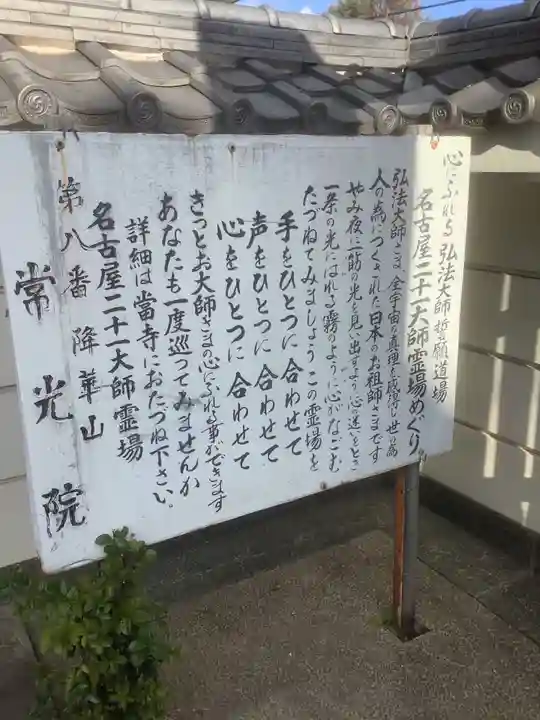 心にふれる 弘法大師誓願道場
名古屋二十一大師霊場めぐり
弘法大師さま、全宇宙の真理を感得し世の為
人の為につくされた日本のお祖師さまです
やみ夜に一筋の光を見い出すよう心の迷いをとき
一条の光にはれる霧のように心がなごむ
たづねてみましょうこの霊場を
手をひとつに合わせて
声をひとつに合わせて
心をひとつに合わせて
きっとお大師さまの心にふれる事ができます
あなたも一度巡ってみませんか
詳細は當寺におたづね下さい。
名古屋二十一大師霊場
第八番 降華山
常光院